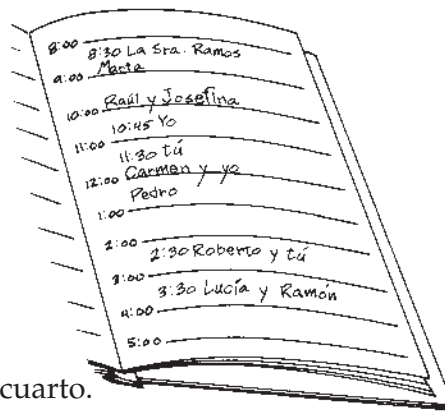 8:00
8:30 La Sra. Ramos
9:00 Marta
10:00 Raúl y Josefina
10:45 Yo
11:00
11:30 tú
12:00 Carmen y yo
Pedro
1:00
2:00
2:30 Roberto y tú
3:00
3:30 Lucía y Ramón
4:00
5:00
cuarto.